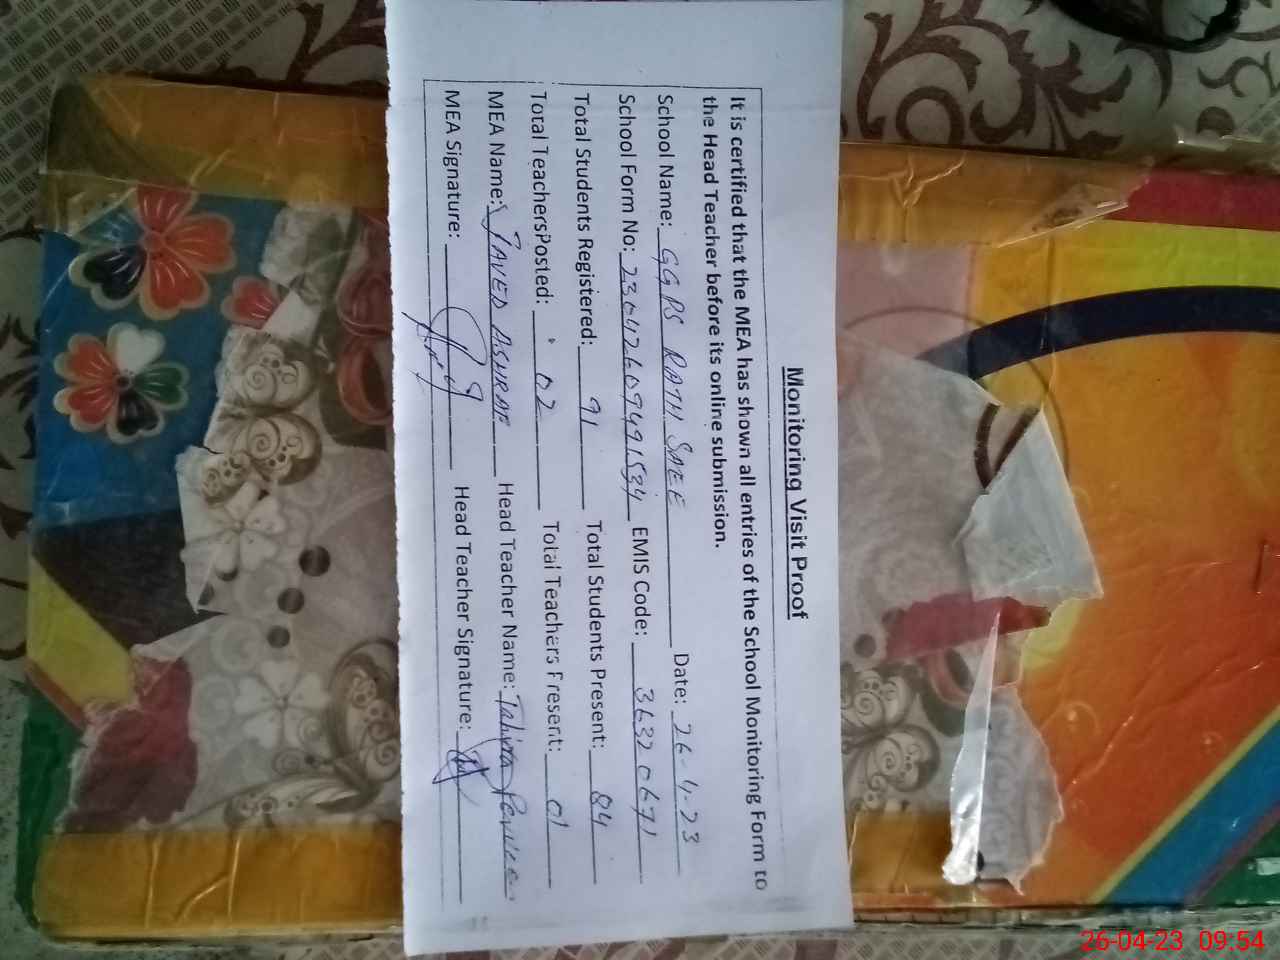 Monitoring Visit Proof
It is certified that the MEA has shown all entries of the School Monitoring Form to
the Head Teacher before its online submission.
School Name: GGPS RATH SAEE Date: 26-4-23
School Form No: 230426094941534 EMIS Code: 36320671
Total Students Registered: 91 Total Students Present: 84
Total TeachersPosted: 02 Total Teachers Present: 01
MEA Name: JAVED ASHRAF Head Teacher Name: Talivta Perveen
MEA Signature: Head Teacher Signature:
26-04-23 09:54